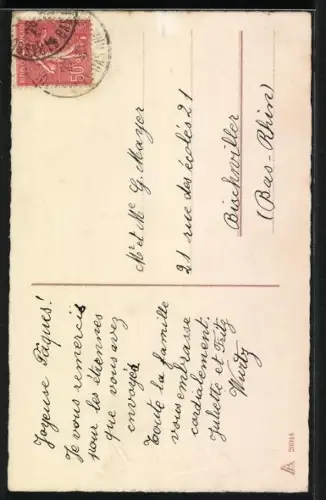 Joyeuse Pâques!
Je vous remercie
pour les étrennes
que vous avez
envoyés
Toute la famille
vous embrasse
cordialement.
Juliette et Fritz
Wurtz
Mr et Me G. Mayer
21 rue des écoles 21
Bischwiller
(Bas-Rhin)
50c